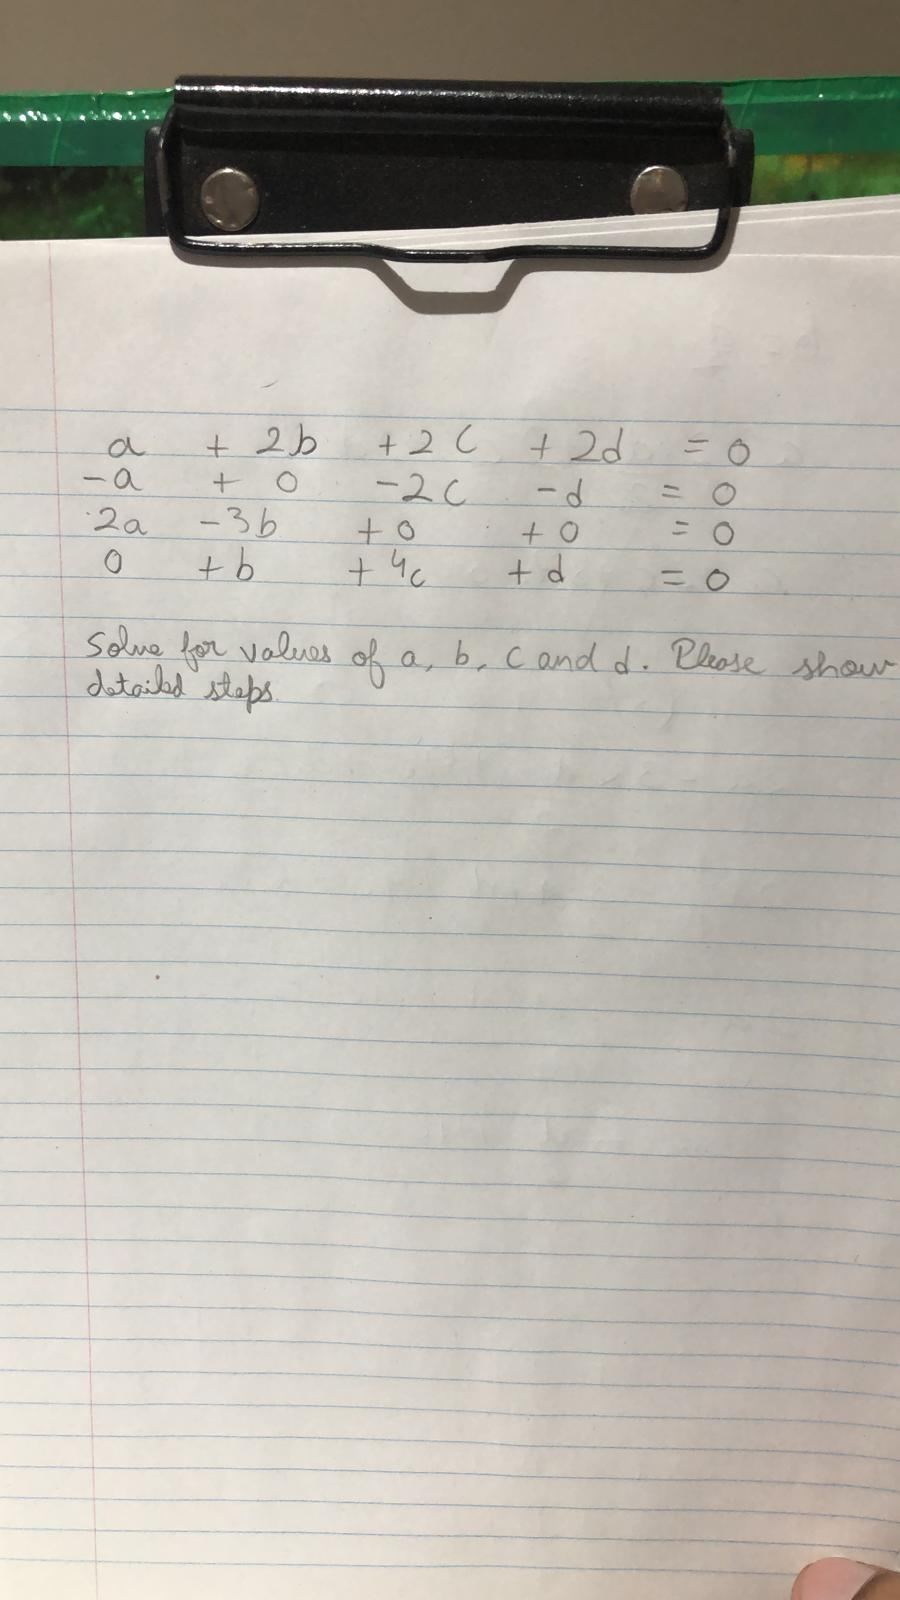 a + 2b + 2c + 2d = 0
-a + 0 - 2c - d = 0
2a - 3b + 0 + 0 = 0
0 + b + 4c + d = 0
Solve for values of a, b, c and d. Please show
detailed steps